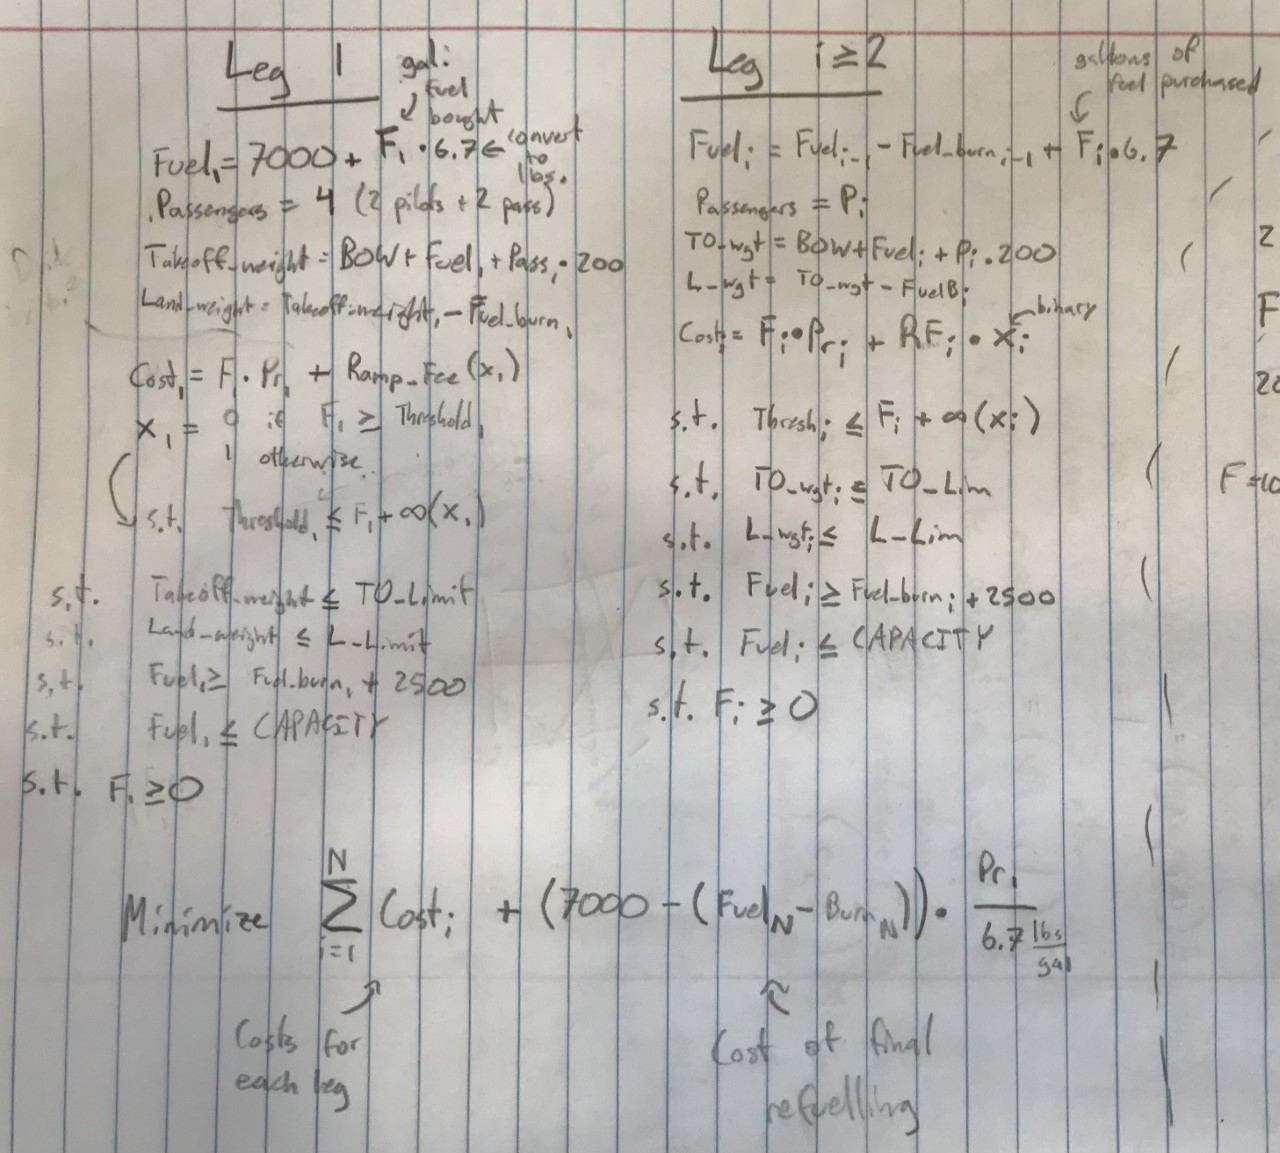 Leg 1
gal:
fuel
bought
Fuel₁ = 7000 + F₁ · 6.7 ← convert
to
lbs.
Passengers = 4 (2 pilots + 2 pass)
Takeoff_weight = BOW + Fuel₁ + Pass₁ · 200
Land_weight = Takeoff_weight₁ - Fuel_burn₁
Cost₁ = F₁ · Pr₁ + Ramp_Fee (x₁)
x₁ = 0 if F₁ ≥ Threshold₁
1 otherwise
s.t. Threshold₁ ≤ F₁ + ∞(x₁)
s.t. Takeoff_weight ≤ TO_Limit
s.t. Land_weight ≤ L_Limit
s.t. Fuel₁ ≥ Fuel_burn₁ + 2500
s.t. Fuel₁ ≤ CAPACITY
s.t. F₁ ≥ 0
Leg i ≥ 2
gallons of
fuel purchased
Fuelᵢ = Fuelᵢ₋₁ - Fuel_burnᵢ₋₁ + Fᵢ · 6.7
Passengers = Pᵢ
TO_wgt = BOW + Fuelᵢ + Pᵢ · 200
L_wgt = TO_wgt - FuelBᵢ
binary
Costᵢ = Fᵢ · Prᵢ + RFᵢ · xᵢ
s.t. Threshᵢ ≤ Fᵢ + ∞(xᵢ)
s.t. TO_wgtᵢ ≤ TO_Lim
s.t. L_wgtᵢ ≤ L_Lim
s.t. Fuelᵢ ≥ Fuel_burnᵢ + 2500
s.t. Fuelᵢ ≤ CAPACITY
s.t. Fᵢ ≥ 0
2
F
20
F=10
Minimize Σ i=1 N Costᵢ + (7000 - (Fuel_N - Burn_N)) · Pr₁ / 6.7 lbs/gal
Costs for
each leg
Cost of final
refuelling